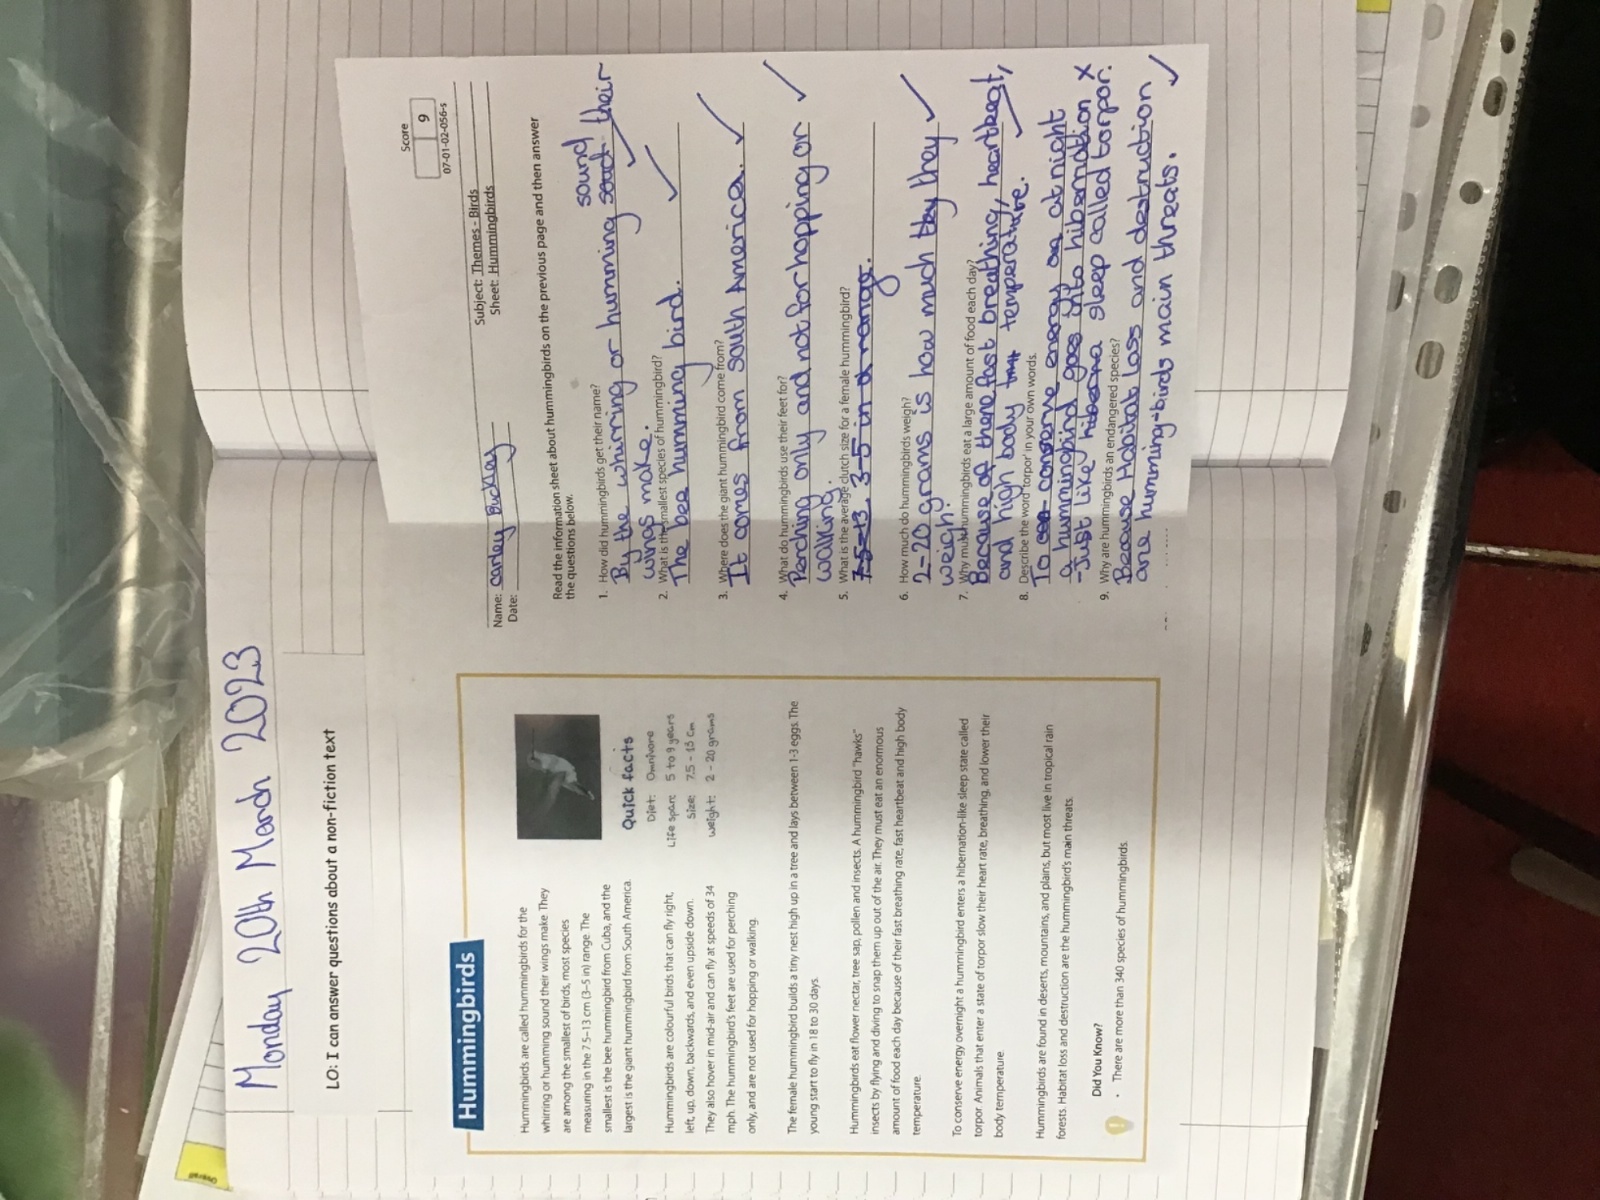 Monday 20th March 2023
LO: I can answer questions about a non-fiction text
Hummingbirds
Hummingbirds are called hummingbirds for the
whirring or humming sound their wings make. They
are among the smallest of birds, most species
measuring in the 7.5–13 cm (3–5 in) range. The
smallest is the bee hummingbird from Cuba, and the
largest is the giant hummingbird from South America.
Hummingbirds are colourful birds that can fly right,
left, up, down, backwards, and even upside down.
They also hover in mid-air and can fly at speeds of 34
mph. The hummingbird's feet are used for perching
only, and are not used for hopping or walking.
Quick facts
Diet: Omnivore
Life span: 5 to 9 years
Size: 7.5 - 13 cm
Weight: 2 - 20 grams
The female hummingbird builds a tiny nest high up in a tree and lays between 1-3 eggs. The
young start to fly in 18 to 30 days.
Hummingbirds eat flower nectar, tree sap, pollen and insects. A hummingbird "hawks"
insects by flying and diving to snap them up out of the air. They must eat an enormous
amount of food each day because of their fast breathing rate, fast heartbeat and high body
temperature.
To conserve energy overnight a hummingbird enters a hibernation-like sleep state called
torpor. Animals that enter a state of torpor slow their heart rate, breathing, and lower their
body temperature.
Hummingbirds are found in deserts, mountains, and plains, but most live in tropical rain
forests. Habitat loss and destruction are the hummingbird's main threats.
Did You Know?
• There are more than 340 species of hummingbirds.
Score
9
07-01-02-056-s
Name: carley Buckley
Date:
Subject: Themes - Birds
Sheet: Hummingbirds
Read the information sheet about hummingbirds on the previous page and then answer
the questions below.
1. How did hummingbirds get their name?
sound
By the whirring or humming their
wings make.
2. What is the smallest species of hummingbird?
The bee humming bird.
3. Where does the giant hummingbird come from?
It comes from South America.
4. What do hummingbirds use their feet for?
Perching only and not for hopping or
walking.
5. What is the average clutch size for a female hummingbird?
7.5-13 3-5 in a range.
6. How much do hummingbirds weigh?
2-20 grams is how much they
weigh.
7. Why must hummingbirds eat a large amount of food each day?
Because of there fast breathing, heartbeat,
and high body temperature.
8. Describe the word 'torpor' in your own words.
To conserve energy at night
a hummingbird goes into hibernation x
-Just like sleep called torpor.
9. Why are hummingbirds an endangered species?
Because Habitat loss and destruction
are humming-birds main threats.
Overall